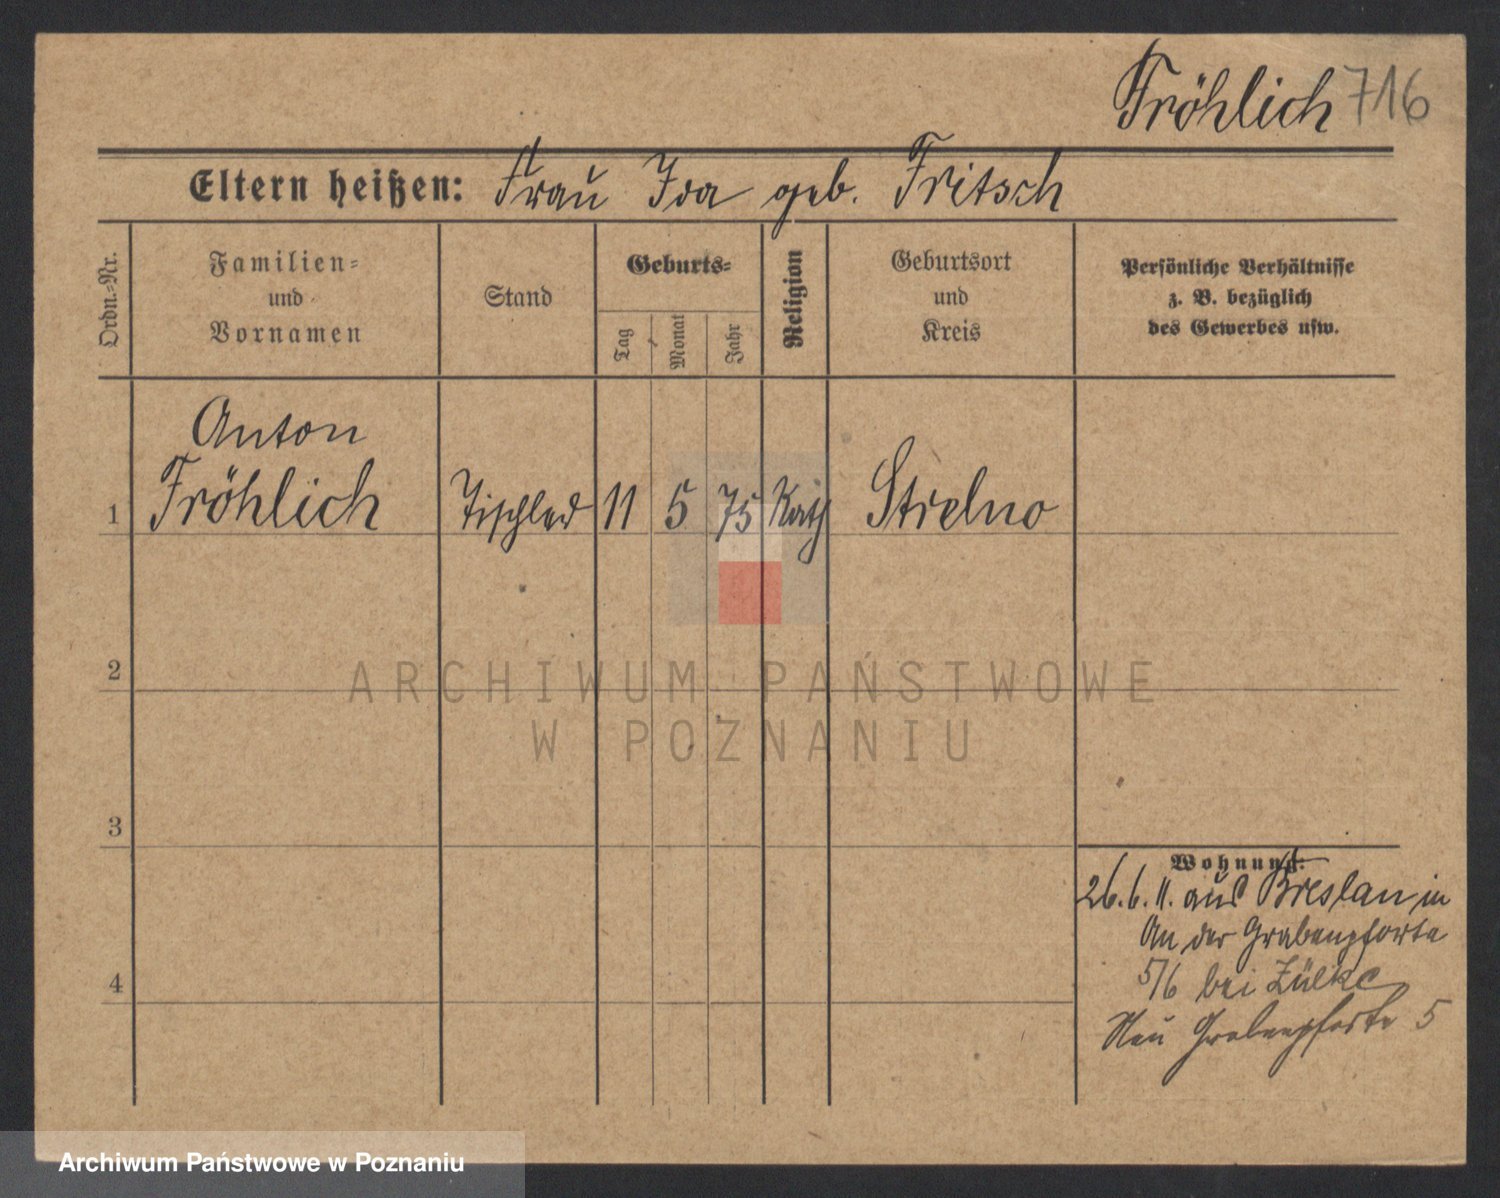 Fröhlich 716
Eltern heißen: Frau Ida geb. Fritsch
Ordn.=Nr.
Familien=
und
Vornamen
Stand
Geburts=
Tag
Monat
Jahr
Religion
Geburtsort
und
Kreis
Persönliche Verhältnisse
z. B. bezüglich
des Gewerbes usw.
Anton
1 Fröhlich Tischler 11 5 75 Kath Strelno
2
3
4
Wohnung:
26.6.11. aus Breslau in
An der Grabenpforte
5/6 bei Zülke
Neu Grabenpforte 5
ARCHIWUM PAŃSTWOWE
W POZNANIU
Archiwum Państwowe w Poznaniu